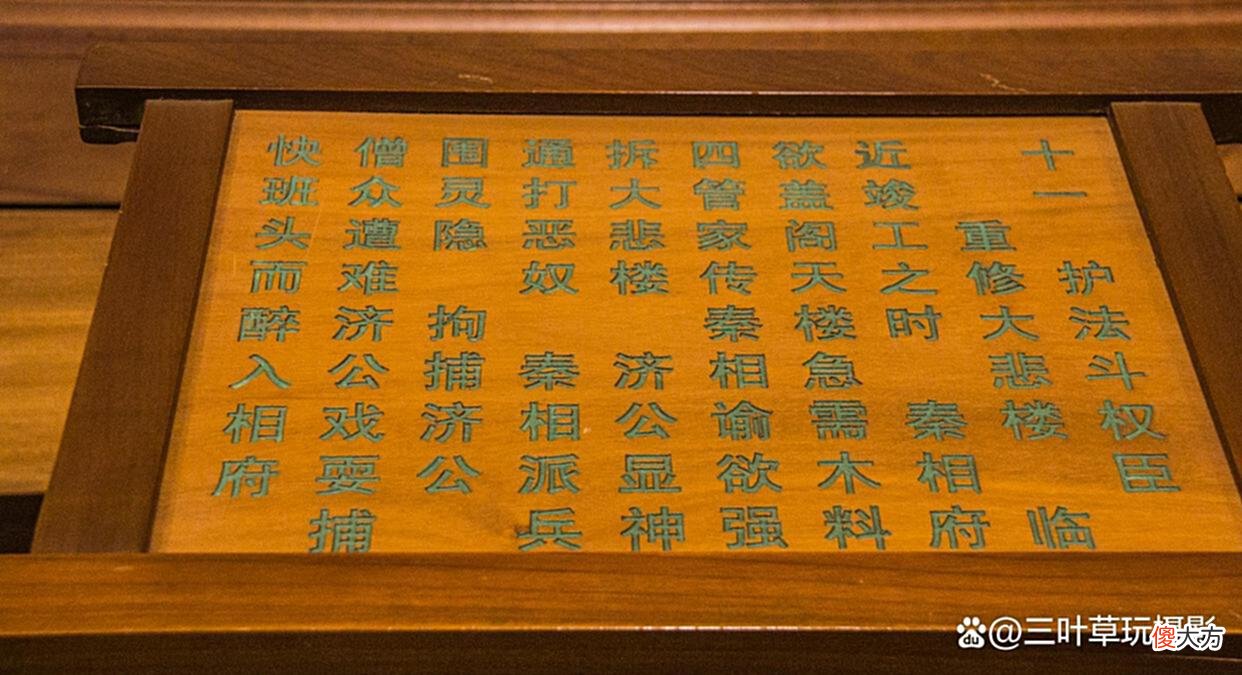 十一 护法斗权臣
重修大悲楼 临
近竣工之时 秦相府
欲盖阁天楼急需木料
四管家传秦相谕欲强
拆大悲楼 济公显神
通打恶奴 秦相派兵
围灵隐 拘捕济公
僧众遭难济公戏耍捕
快班头而醉入相府
du @三叶草玩摄影
傻大方